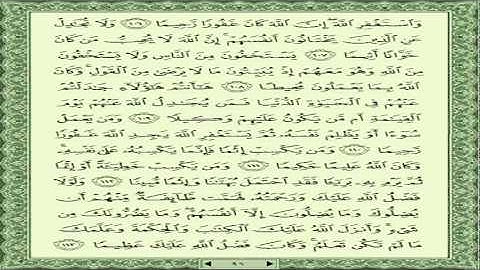 وَٱسْتَغْفِرِ ٱللَّهَ إِنَّ ٱللَّهَ كَانَ غَفُورًا رَّحِيمًا ١٠٦ وَلَا تُجَٰدِلْ
عَنِ ٱلَّذِينَ يَخْتَانُونَ أَنفُسَهُمْ إِنَّ ٱللَّهَ لَا يُحِبُّ مَن كَانَ
خَوَّانًا أَثِيمًا ١٠٧ يَسْتَخْفُونَ مِنَ ٱلنَّاسِ وَلَا يَسْتَخْفُونَ
مِنَ ٱللَّهِ وَهُوَ مَعَهُمْ إِذْ يُبَيِّتُونَ مَا لَا يَرْضَىٰ مِنَ ٱلْقَوْلِ وَكَانَ
ٱللَّهُ بِمَا يَعْمَلُونَ مُحِيطًا ١٠٨ هَٰٓأَنتُمْ هَٰٓؤُلَآءِ جَٰدَلْتُمْ
عَنْهُمْ فِى ٱلْحَيَوٰةِ ٱلدُّنْيَا فَمَن يُجَٰدِلُ ٱللَّهَ عَنْهُمْ يَوْمَ
ٱلْقِيَٰمَةِ أَم مَّن يَكُونُ عَلَيْهِمْ وَكِيلًا ١٠٩ وَمَن يَعْمَلْ
سُوٓءًا أَوْ يَظْلِمْ نَفْسَهُۥ ثُمَّ يَسْتَغْفِرِ ٱللَّهَ يَجِدِ ٱللَّهَ غَفُورًا
رَّحِيمًا ١١٠ وَمَن يَكْسِبْ إِثْمًا فَإِنَّمَا يَكْسِبُهُۥ عَلَىٰ نَفْسِهِۦ
وَكَانَ ٱللَّهُ عَلِيمًا حَكِيمًا ١١١ وَمَن يَكْسِبْ خَطِيٓـَٔةً أَوْ إِثْمًا
ثُمَّ يَرْمِ بِهِۦ بَرِيٓـًٔا فَقَدِ ٱحْتَمَلَ بُهْتَٰنًا وَإِثْمًا مُّبِينًا ١١٢ وَلَوْلَا
فَضْلُ ٱللَّهِ عَلَيْكَ وَرَحْمَتُهُۥ لَهَمَّت طَّآئِفَةٌ مِّنْهُمْ أَن
يُضِلُّوكَ وَمَا يُضِلُّونَ إِلَّآ أَنفُسَهُمْ وَمَا يَضُرُّونَكَ مِن
شَىْءٍ وَأَنزَلَ ٱللَّهُ عَلَيْكَ ٱلْكِتَٰبَ وَٱلْحِكْمَةَ وَعَلَّمَكَ
مَا لَمْ تَكُن تَعْلَمُ وَكَانَ فَضْلُ ٱللَّهِ عَلَيْكَ عَظِيمًا ١١٣
٩٦